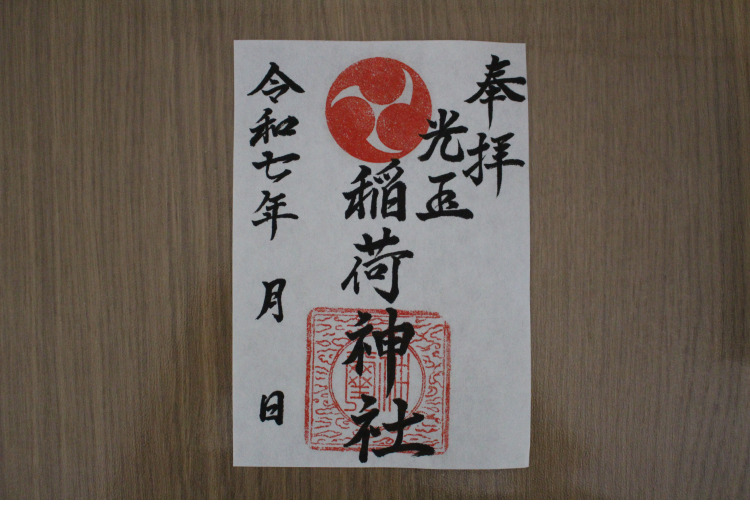 奉拝
光正
稲荷神社
令和七年 月 日